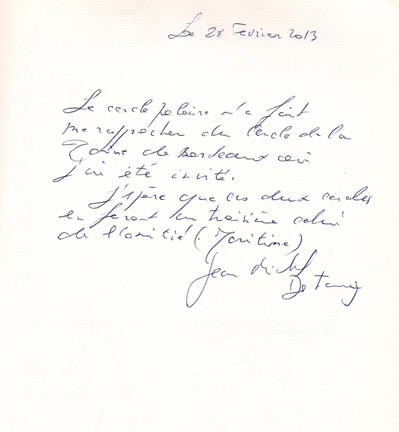 Le 28 Fevrier 2013
Le cercle polaire m'a fait
me rapprocher du Cercle de la
de Bordeaux où
j'ai été invité.
J'espère que ces deux cercles
en feront un troisième celui
de l'amitié (Maritime)
Jean Michel